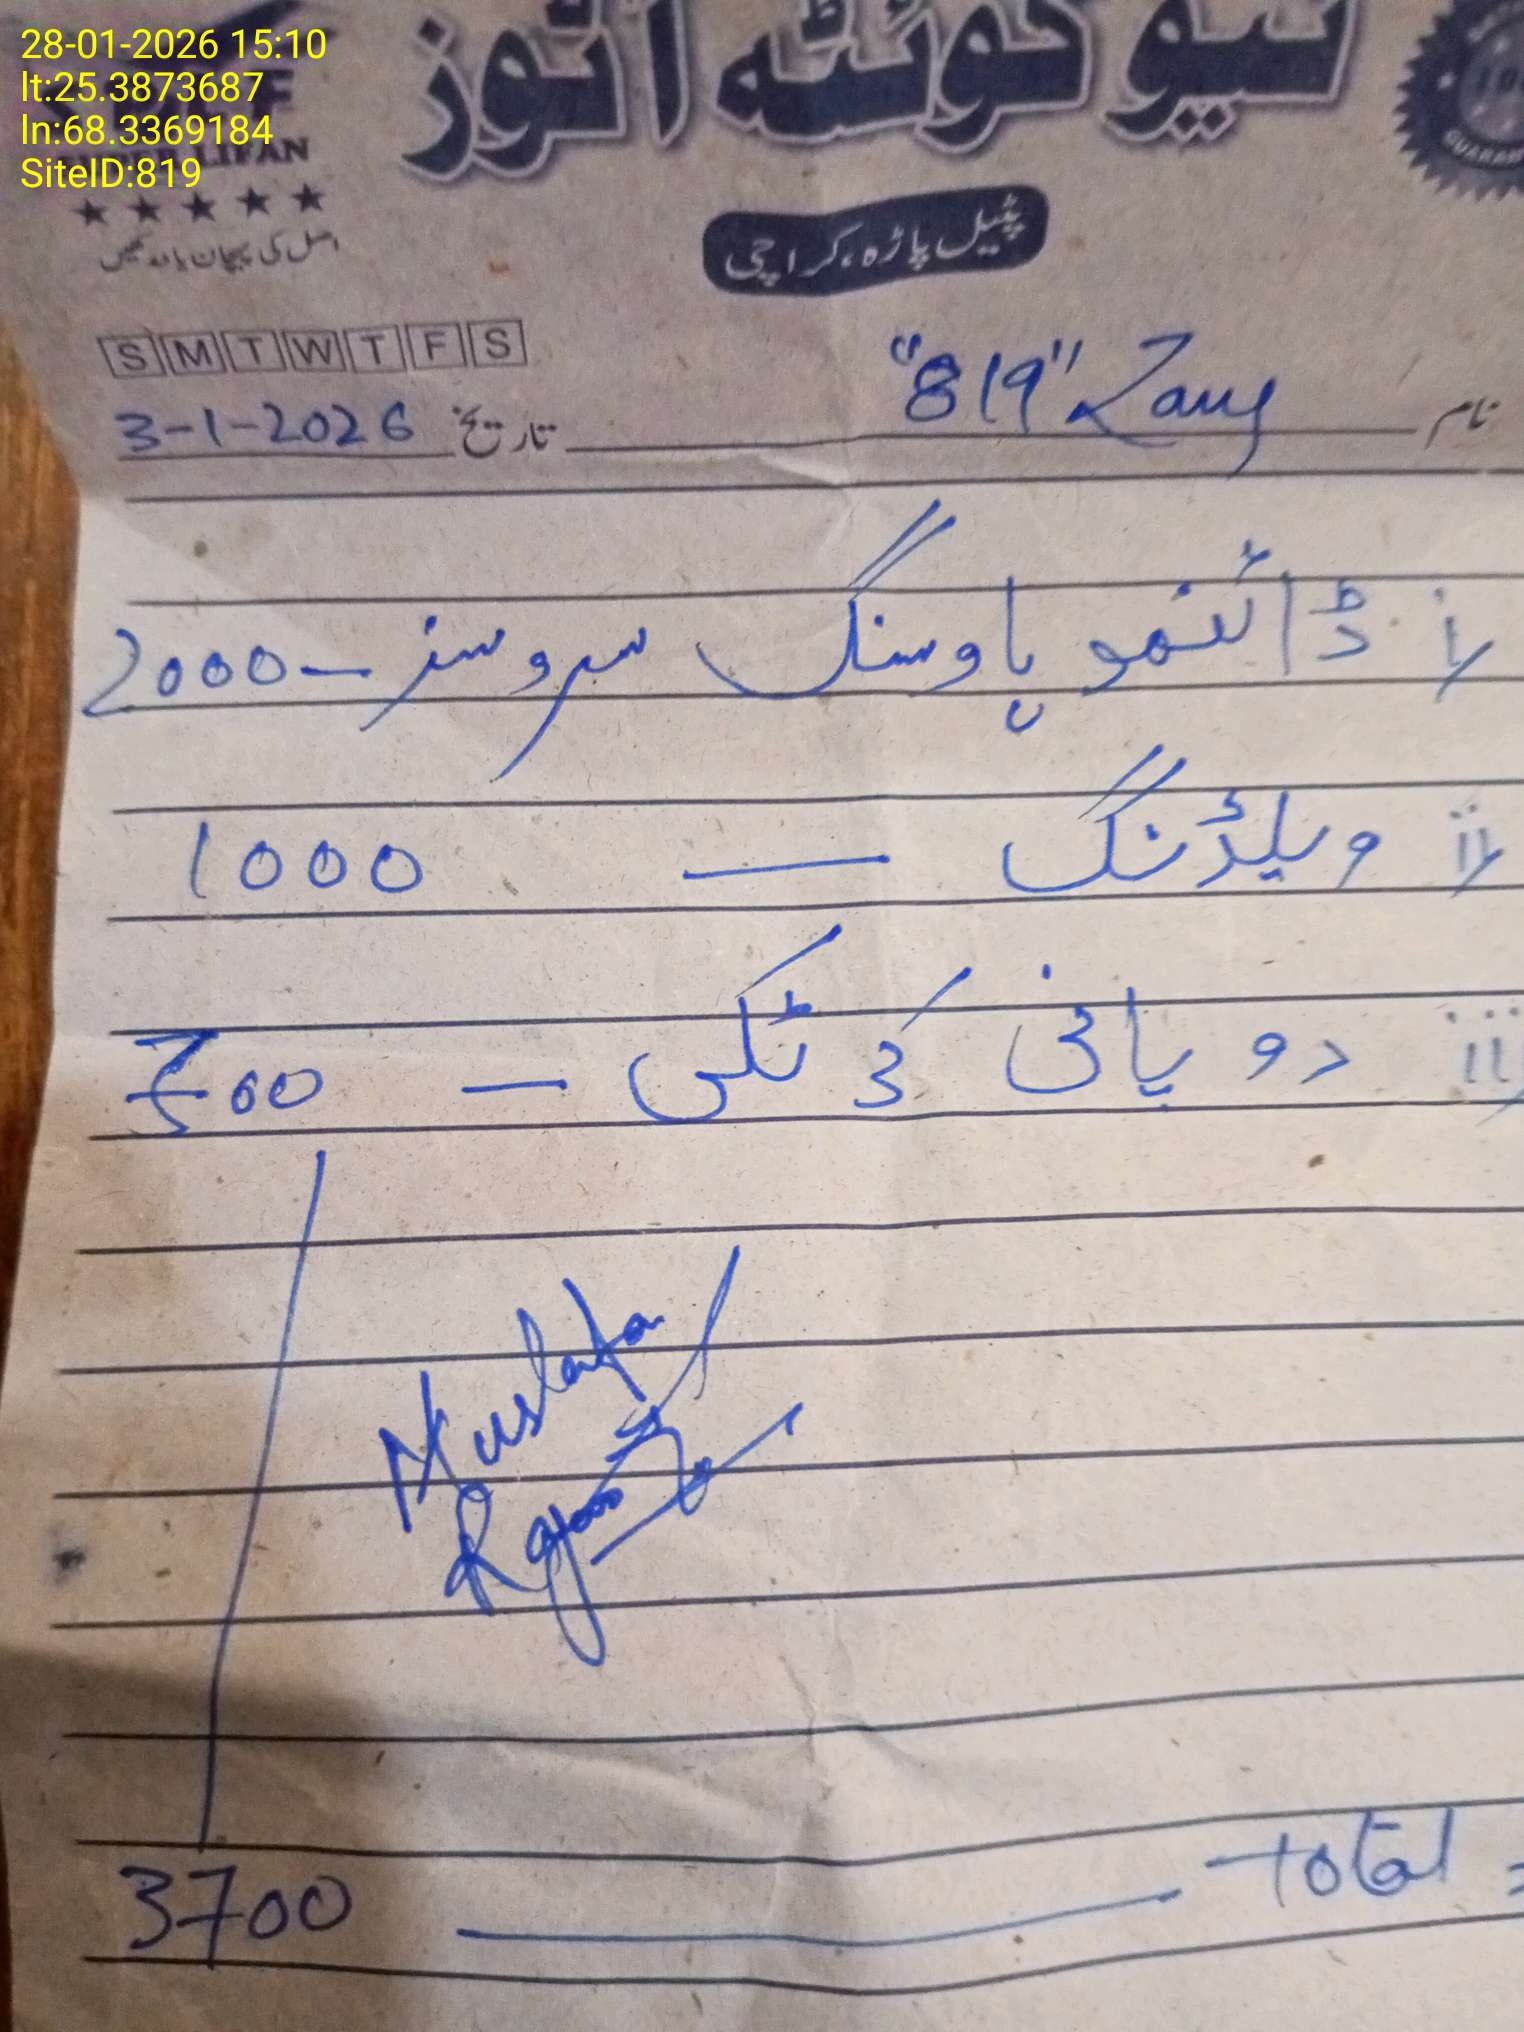 28-01-2026 15:10
lt:25.3873687
ln:68.3369184
SiteID:819
نیو کوئٹہ آٹوز
LIFAN
GUARAN
پٹیل پاڑہ، کراچی
اصل کی پہچان یاد رکھیں
S M T W T F S
نام "819"
تاریخ 3-1-2026
i ڈائنمو ہاوسنگ سروسز – 2000
ii ویلڈنگ — 1000
iii دو پانی کی ٹکی – 700
Mustafa
total = 3700